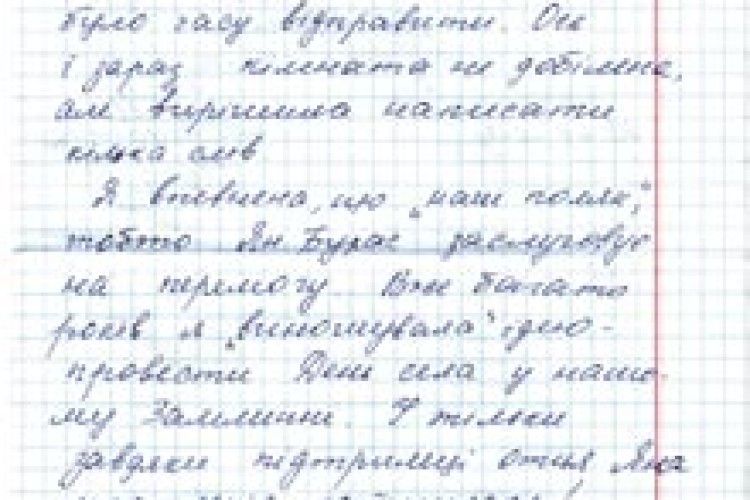 було часу відправити. Ось
і зараз кімната не добілена,
але вирішила написати
кілька слів
Я впевнена, що „наш поляк",
тобто Ян Бурас заслуговує
на перемогу. Вже багато
років я „виношувала" ідею
провести День села у нашо-
му Залимані. І тільки
завдяки підтримці отця Яна